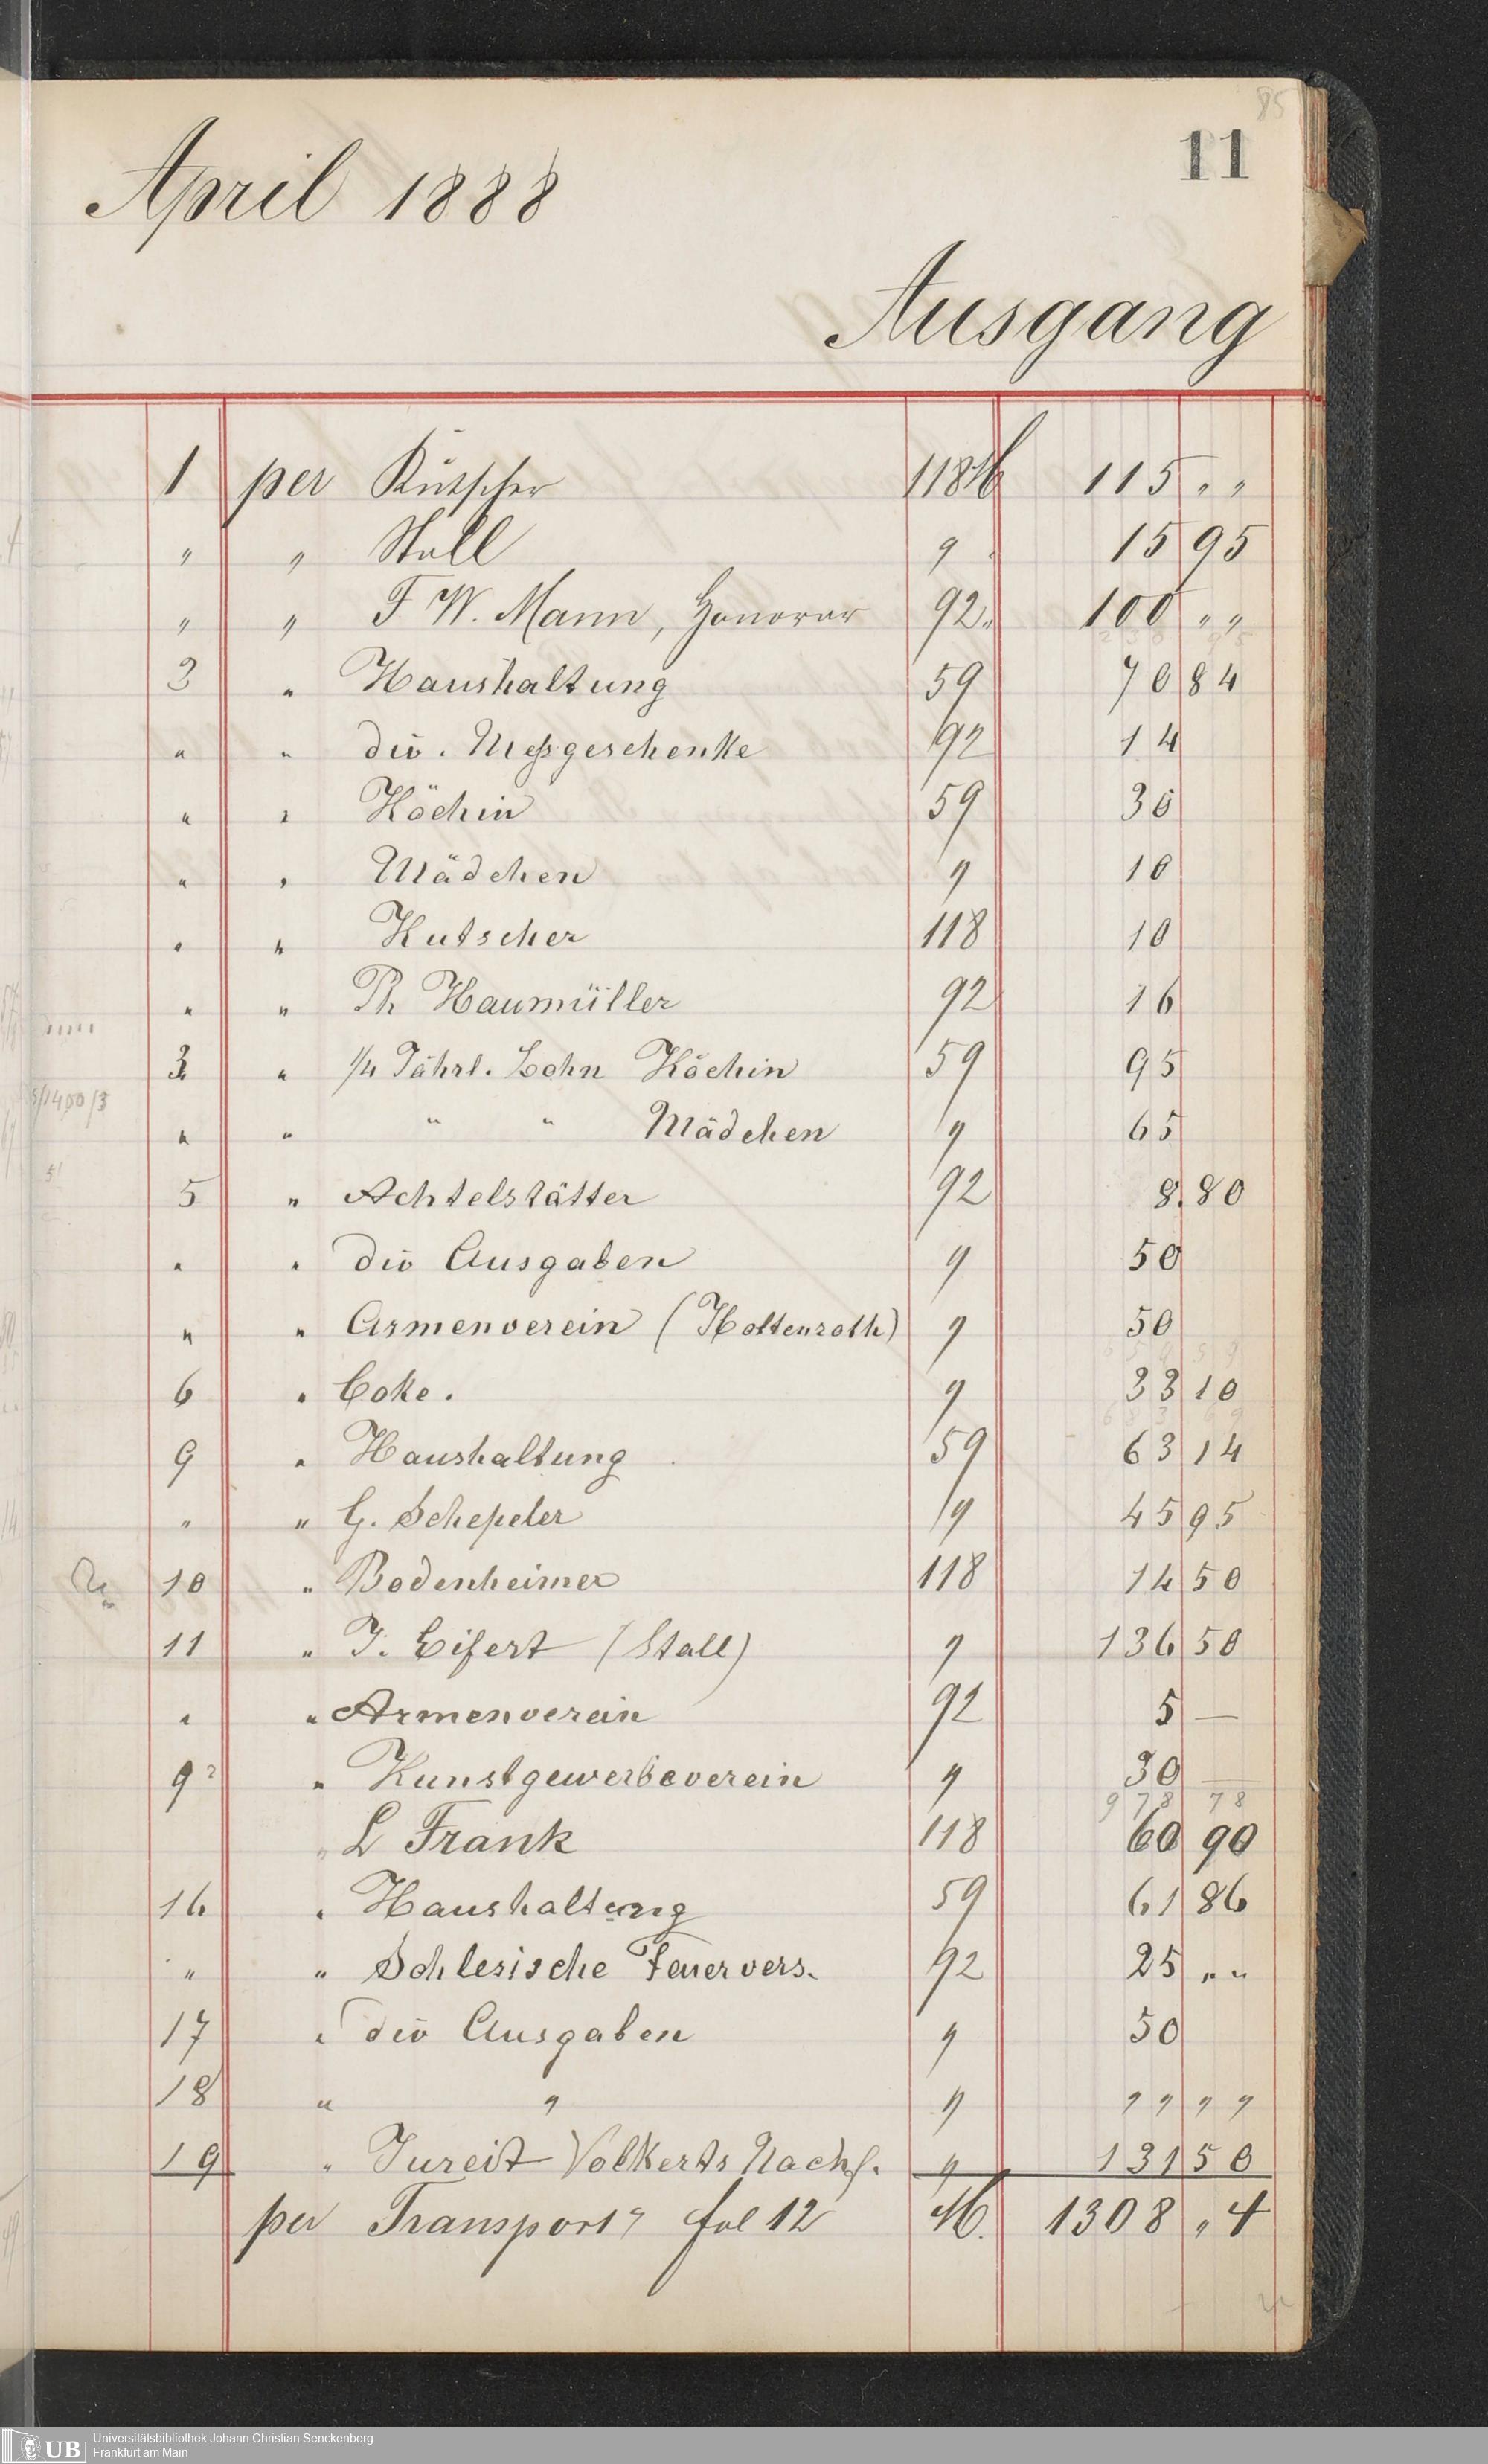 85
11
April 1888
Ausgang
1 per Kutscher 118 M 115 " "
" " Stall " 15 95
" " F W. Mann, Honorar 92 " 100 " "
3 " Haushaltung 59 70 84
" " div. Meßgeschenke 92 14
" " Köchin 59 30
" " Mädchen " 10
" " Kutscher 118 10
" " Ph Haumüller 92 16
3 " 1/4 Jährl. Lohn Köchin 59 95
" " " " Mädchen " 65
5 " Achtelstätter 92 8.80
" " div Ausgaben " 50
" " Armenverein (Holtenroth) " 50
6 " Coke. " 33 10
9 " Haushaltung 59 63 14
" " G. Schepeler " 45 95
10 " Bodenheimer 118 14 50
11 " J. Eifert (Stall) " 136 50
" " Armenverein 92 5 —
9 ? " Kunstgewerbeverein " 30 —
978 78
" L Frank 118 60 90
16 " Haushaltung 59 61 86
" " Schlesische Feuervers. 92 25 " "
17 " div Ausgaben " 50
18 " " " " " " "
19 " Jureit Volkerts Nachf. " 131 50
per Transport fol 12 M. 1308 " 4
UB Universitätsbibliothek Johann Christian Senckenberg
Frankfurt am Main